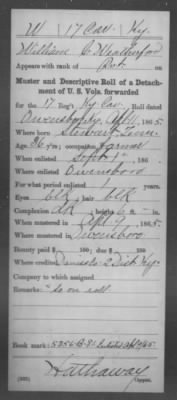 W 17 Cav. Ky.
William C. Weatherford
Appears with rank of Pvt.
Muster and Descriptive Roll of a Detach-
ment of U. S. Vols. forwarded
for the 17 Reg't Ky Cav. Roll dated
Owensboro Ky, 186 5.
Where born Stewart, Tenn.
Age 36 y'rs; occupation farmer
When enlisted Sept 1, 186
Where enlisted Owensboro
For what period enlisted 1 years.
Eyes blk; hair blk
Complexion dk; height 6 ft. in.
When mustered in Apl 9, 186 5.
Where mustered in Owensboro
Bounty paid $ 100; due $ 100
Where credited 2 Dist. Ky.
Company to which assigned
Remarks: "so on roll
Book mark:
Hathaway
Copyist.